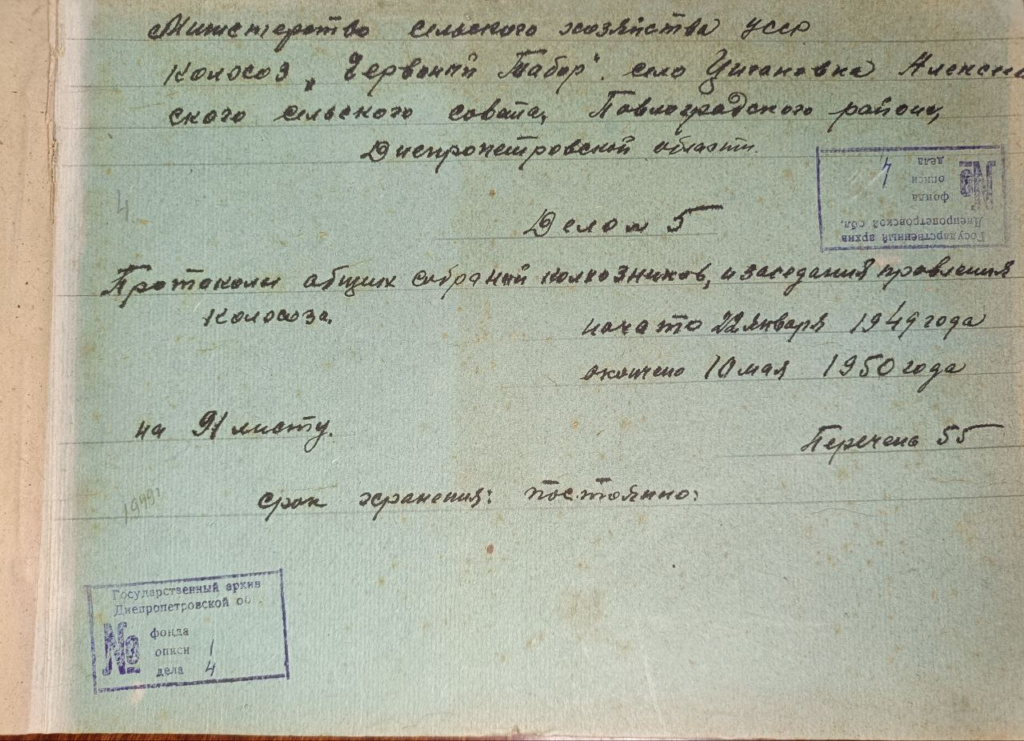 Министерство сельского хозяйства УССР
колхоз "Червоний Табор". село Цигановка Алекса
ского сельского совета, Павлоградского района,
Днепропетровской области.
4
Дело № 5
Протаколы общих собраний колхозников, и заседания правления
колхоза.
начато 22 января 1949 года
окончено 10 мая 1950 года
на 91 листу.
Перечень 55
срок хранения: постоянно:
1949
Государственный архив
Днепропетровской обл.
№ фонда
описи
дела 4
Государственный архив
Днепропетровской об
№ фонда
описи 1
дела 4